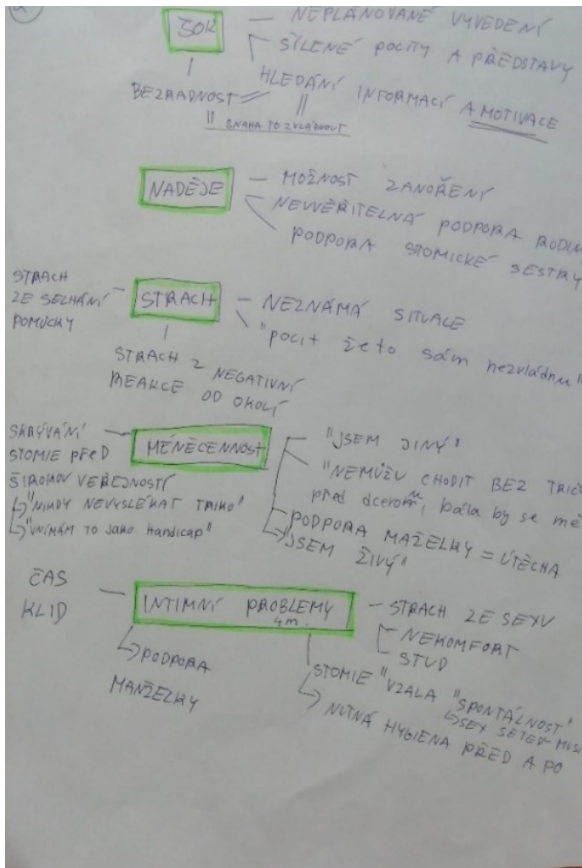 ŠOK
- NEPLÁNOVANÉ VYVEDENÍ
ŠÍLENÉ POCITY A PŘEDSTAVY
HLEDÁNÍ INFORMACÍ A MOTIVACE
BEZRADNOST
SNAHA TO ZVLÁDNOUT
NADĚJE
- MOŽNOST ZANOŘENÍ
- NEUVĚŘITELNÁ PODPORA RODIN
PODPORA STOMICKÉ SESTRY
STRACH
ZE SELHÁNÍ
POMŮCKY
STRACH
- NEZNÁMÁ SITUACE
"pocit že to sám nezvládnu"
STRACH Z NEGATIVNÍ
REAKCE OD OKOLÍ
SKRÝVÁNÍ
STOMIE PŘED
ŠIROKOU VEŘEJNOSTÍ
"NIKDY NEVYSLÉKAT TRIKO"
"VNÍMÁM TO JAKO HANDICAP"
MÉNĚCENNOST
"JSEM JINÝ"
"NEMŮŽU CHODIT BEZ TRIČ
před dcerou, bála by se mě
PODPORA MAŽELKY = ÚTĚCHA
"JSEM ŽIVÝ"
ČAS
KLID
INTIMNÍ PROBLEMY
4m.
- STRACH ZE SEXU
- NEKOMFORT
- STUD
PODPORA
MANŽELKY
STOMIE "VZALA "SPONTÁLNOST"
SEX
NUTNÁ HYGIENA PŘED A PO